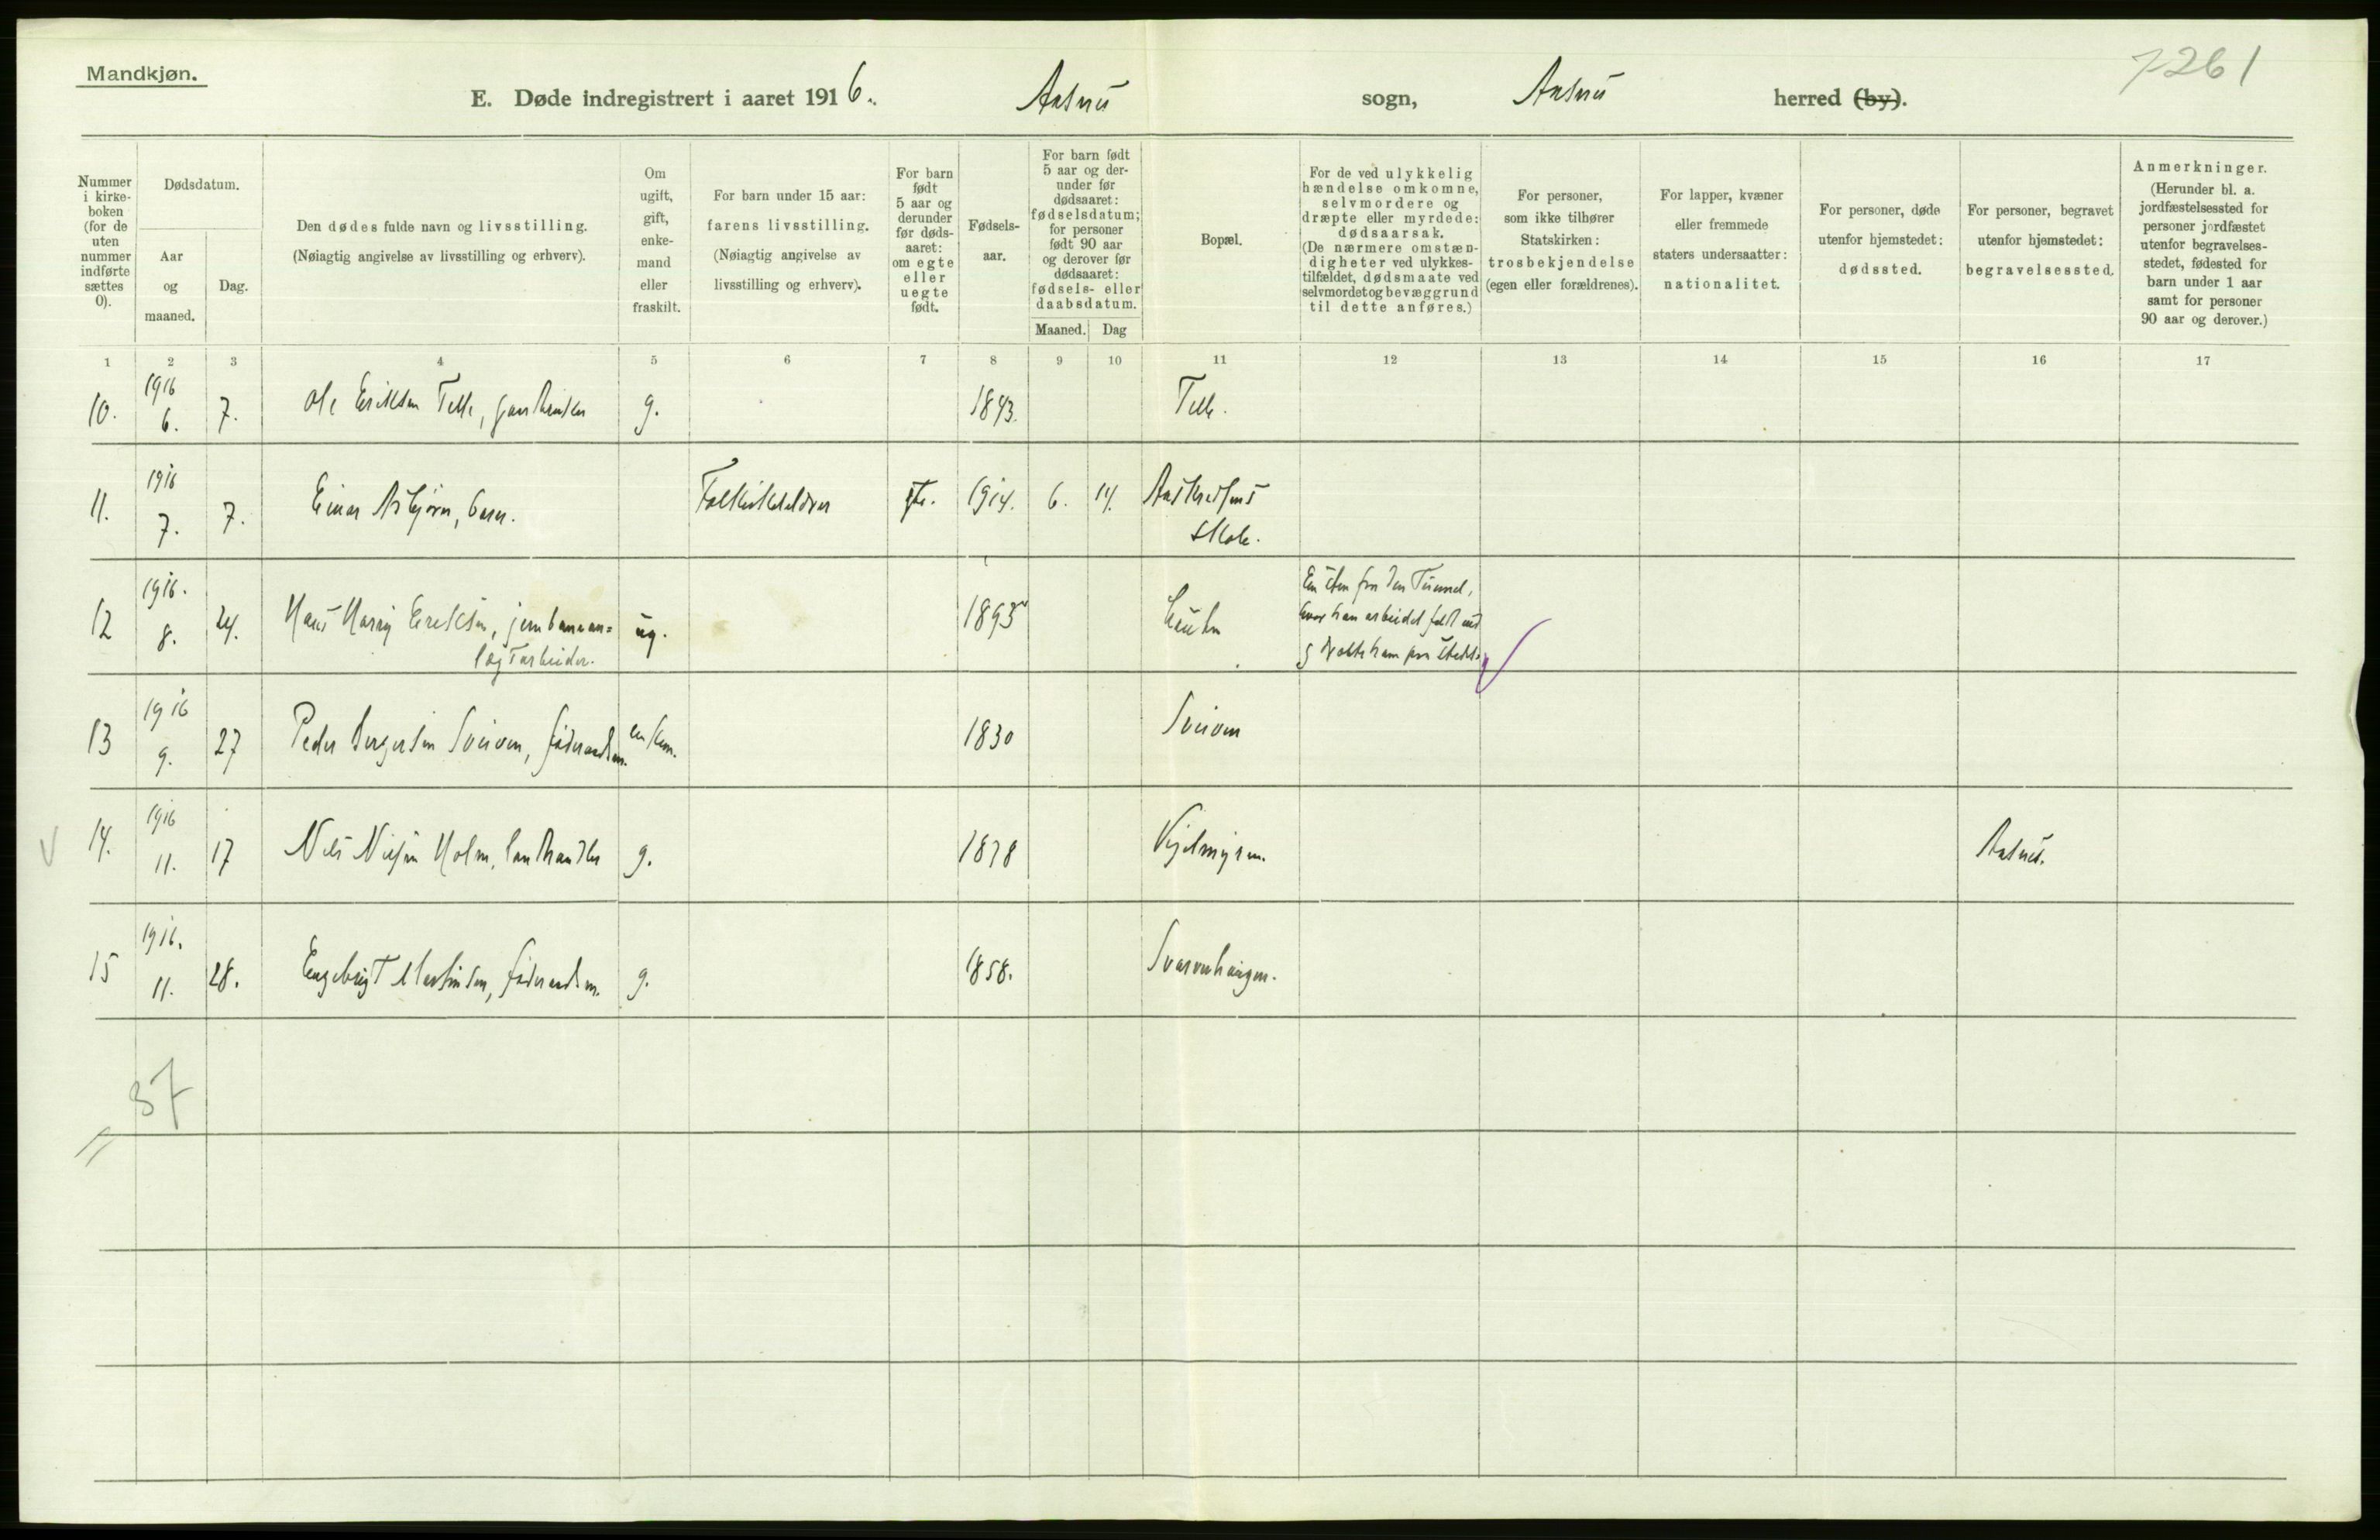 Mandkjøn.
7261
E. Døde indregistrert i aaret 1916. Aasnes sogn, Aasnes herred (by).
Nummer i kirke-boken (for de uten nummer indførte sættes 0).
Dødsdatum.
Aar og maaned.
Dag.
Den dødes fulde navn og livsstilling.
(Nøiagtig angivelse av livsstilling og erhverv).
Om ugift, gift, enke-mand eller fraskilt.
For barn under 15 aar:
farens livsstilling.
(Nøiagtig angivelse av livsstilling og erhverv).
For barn født 5 aar og derunder før døds-aaret: om egte eller uegte født.
Fødsels-aar.
For barn født 5 aar og der-under før dødsaaret: fødselsdatum; for personer født 90 aar og derover før dødsaaret: fødsels- eller daabsdatum.
Maaned. Dag
Bopæl.
For de ved ulykkelig hændelse omkomne, selvmordere og dræpte eller myrdede: dødsaarsak.
(De nærmere omstæn-digheter ved ulykkes-tilfældet, dødsmaate ved selvmordet og bevæggrund til dette anføres.)
For personer, som ikke tilhører Statskirken: trosbekjendelse (egen eller forældrenes).
For lapper, kvæner eller fremmede staters undersaatter: nationalitet.
For personer, døde utenfor hjemstedet: dødssted.
For personer, begravet utenfor hjemstedet: begravelsessted.
Anmerkninger.
(Herunder bl. a. jordfæstelsessted for personer jordfæstet utenfor begravelses-stedet, fødested for barn under 1 aar samt for personer 90 aar og derover.)
1 2 3 4 5 6 7 8 9 10 11 12 13 14 15 16 17
10. 1916 6. 7. Ole Eriksen Telle, gaardbruker g. 1843. Telle.
11. 1916 7. 7. Einar Asbjørn, barn. Folkeskolelærer gte. 1914. 6. 14.
Skole.
12 1916. 8. 24. Hans Harry Eriksen, jernbanean=
lægsarbeider. ug. 1895
En sten fra den Tunnel,
hvor han arbeidet faldt ned
g dræpte ham paa stedet.
13 1916 9. 27 Peder Bergersen Sveiven, føderaadsm. enkem. 1830 Sveiven
14. 1916 11. 17 Nils Nilsen Holm, landhandler g. 1878 Aasnes.
15 1916. 11. 28. Engebrigt Martinsen, føderaadsm. g. 1858. Svarverhaugen.
37